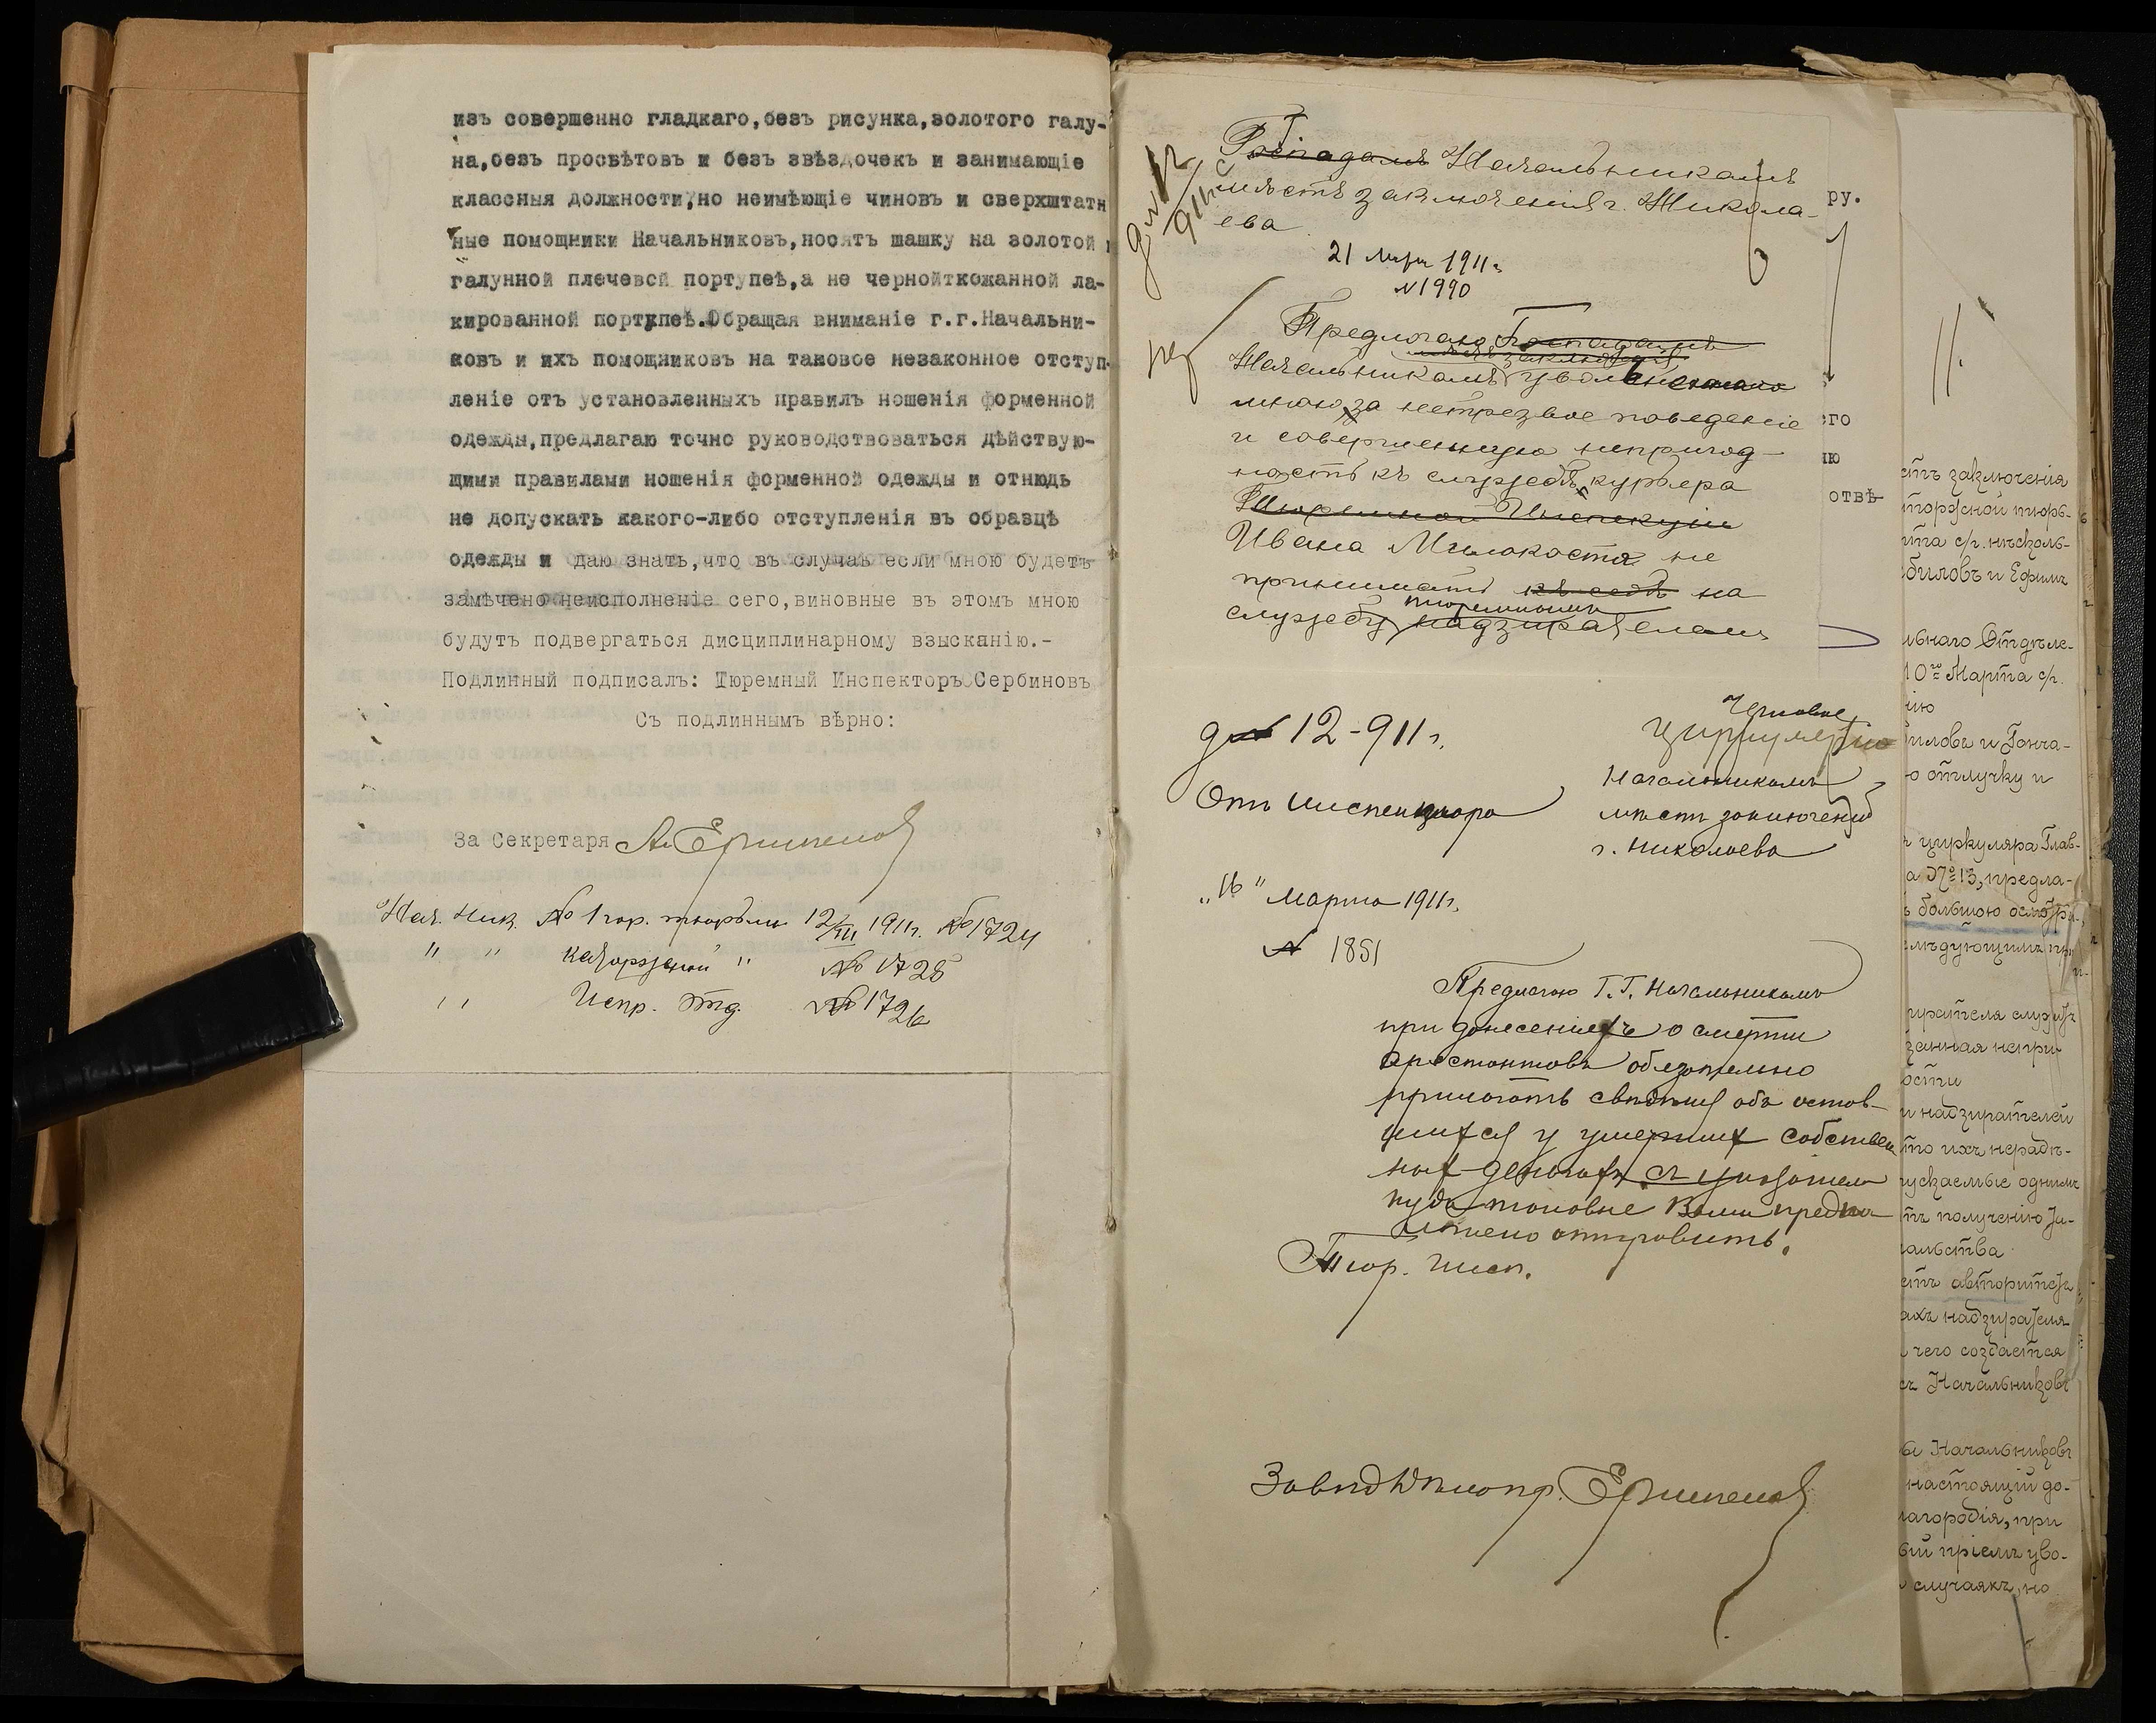 изъ совершенно гладкаго,безъ рисунка,золотого галу-
на,безъ просвѣтовъ и безъ звѣздочекъ и занимающіе
классныя должности,но неимѣющіе чиновъ и сверхштатн
ные помощники Начальниковъ,носятъ шашку на золотой
галунной плечевой портупеѣ,а не чернойткожанной ла-
кированной портупеѣ.Обращая вниманіе г.г.Начальни-
ковъ и ихъ помощниковъ на таковое незаконное отступ-
леніе отъ установленныхъ правилъ ношенія форменной
одежды,предлагаю точно руководствоваться дѣйствую-
щими правилами ношенія форменной одежды и отнюдь
не допускать какого-либо отступленія въ образцѣ
одежды и даю знать,что въ случаѣ если мною будетъ
замѣчено неисполненіе сего,виновные въ этомъ мною
будутъ подвергаться дисциплинарному взысканію.-
Подлинный подписалъ: Тюремный Инспекторъ Сербиновъ
Съ подлиннымъ вѣрно:
За Секретаря
Нач. Ник. № 1 гор. тюрьмы 12/III 1911г. № 1724
" " каторжной " № 1725
" Испр. Отд. № 1726
Господамъ Начальникамъ
мѣстъ заключенія г. Никола-
ева
21 Мар 1911г.
№ 1990
Предлагаю Господамъ
мѣстъ заключенія
Начальникамъ уволеннаго
мною за нетрезвое поведеніе
и совершенную непригод-
ность къ службѣ курьера
Тюремной Инспекціи
Ивана Милокоста не
принимать къ себѣ на
тюремнымъ
службу надзирателемъ
д № 12-911г.
Циркулярно
Отъ Инспектора
Начальникамъ
мѣстъ заключенія
г. Николаева
„16" Марта 1911г.
№ 1851
Предлагаю Г.Г. Начальникамъ
при донесеніяхъ о смерти
арестантовъ обязательно
прилагать свѣдѣнія объ остав-
шихся у умершихъ собствен
ныхъ деньгахъ съ указаніем
куда таковые Вами предпо
ложено отправить.
Тюр. Инсп.
ру.
его
ію
отвѣ-
стъ заключенія
торжной тюрь-
ита с/г. нѣсколь-
биловъ и Ефимъ
льнаго Отдѣле-
10го Марта с/г.
нію
биловъ и Гонча-
ю отлучку и
ъ циркуляра Глав-
а № 13, предла-
ъ большою осмотри-
лѣдующимъ при
ирателя служи
занная непри
ости
и надзирателей
то ихъ нерадѣ-
пускаемые однимъ
тъ полученію За-
альства
етъ авторитетъ
ахъ надзирателя
чего создается
съ Начальниковъ
бы Начальниковъ
настоящій до-
лагородія, при
бый пріемъ уво-
случаяхъ, но